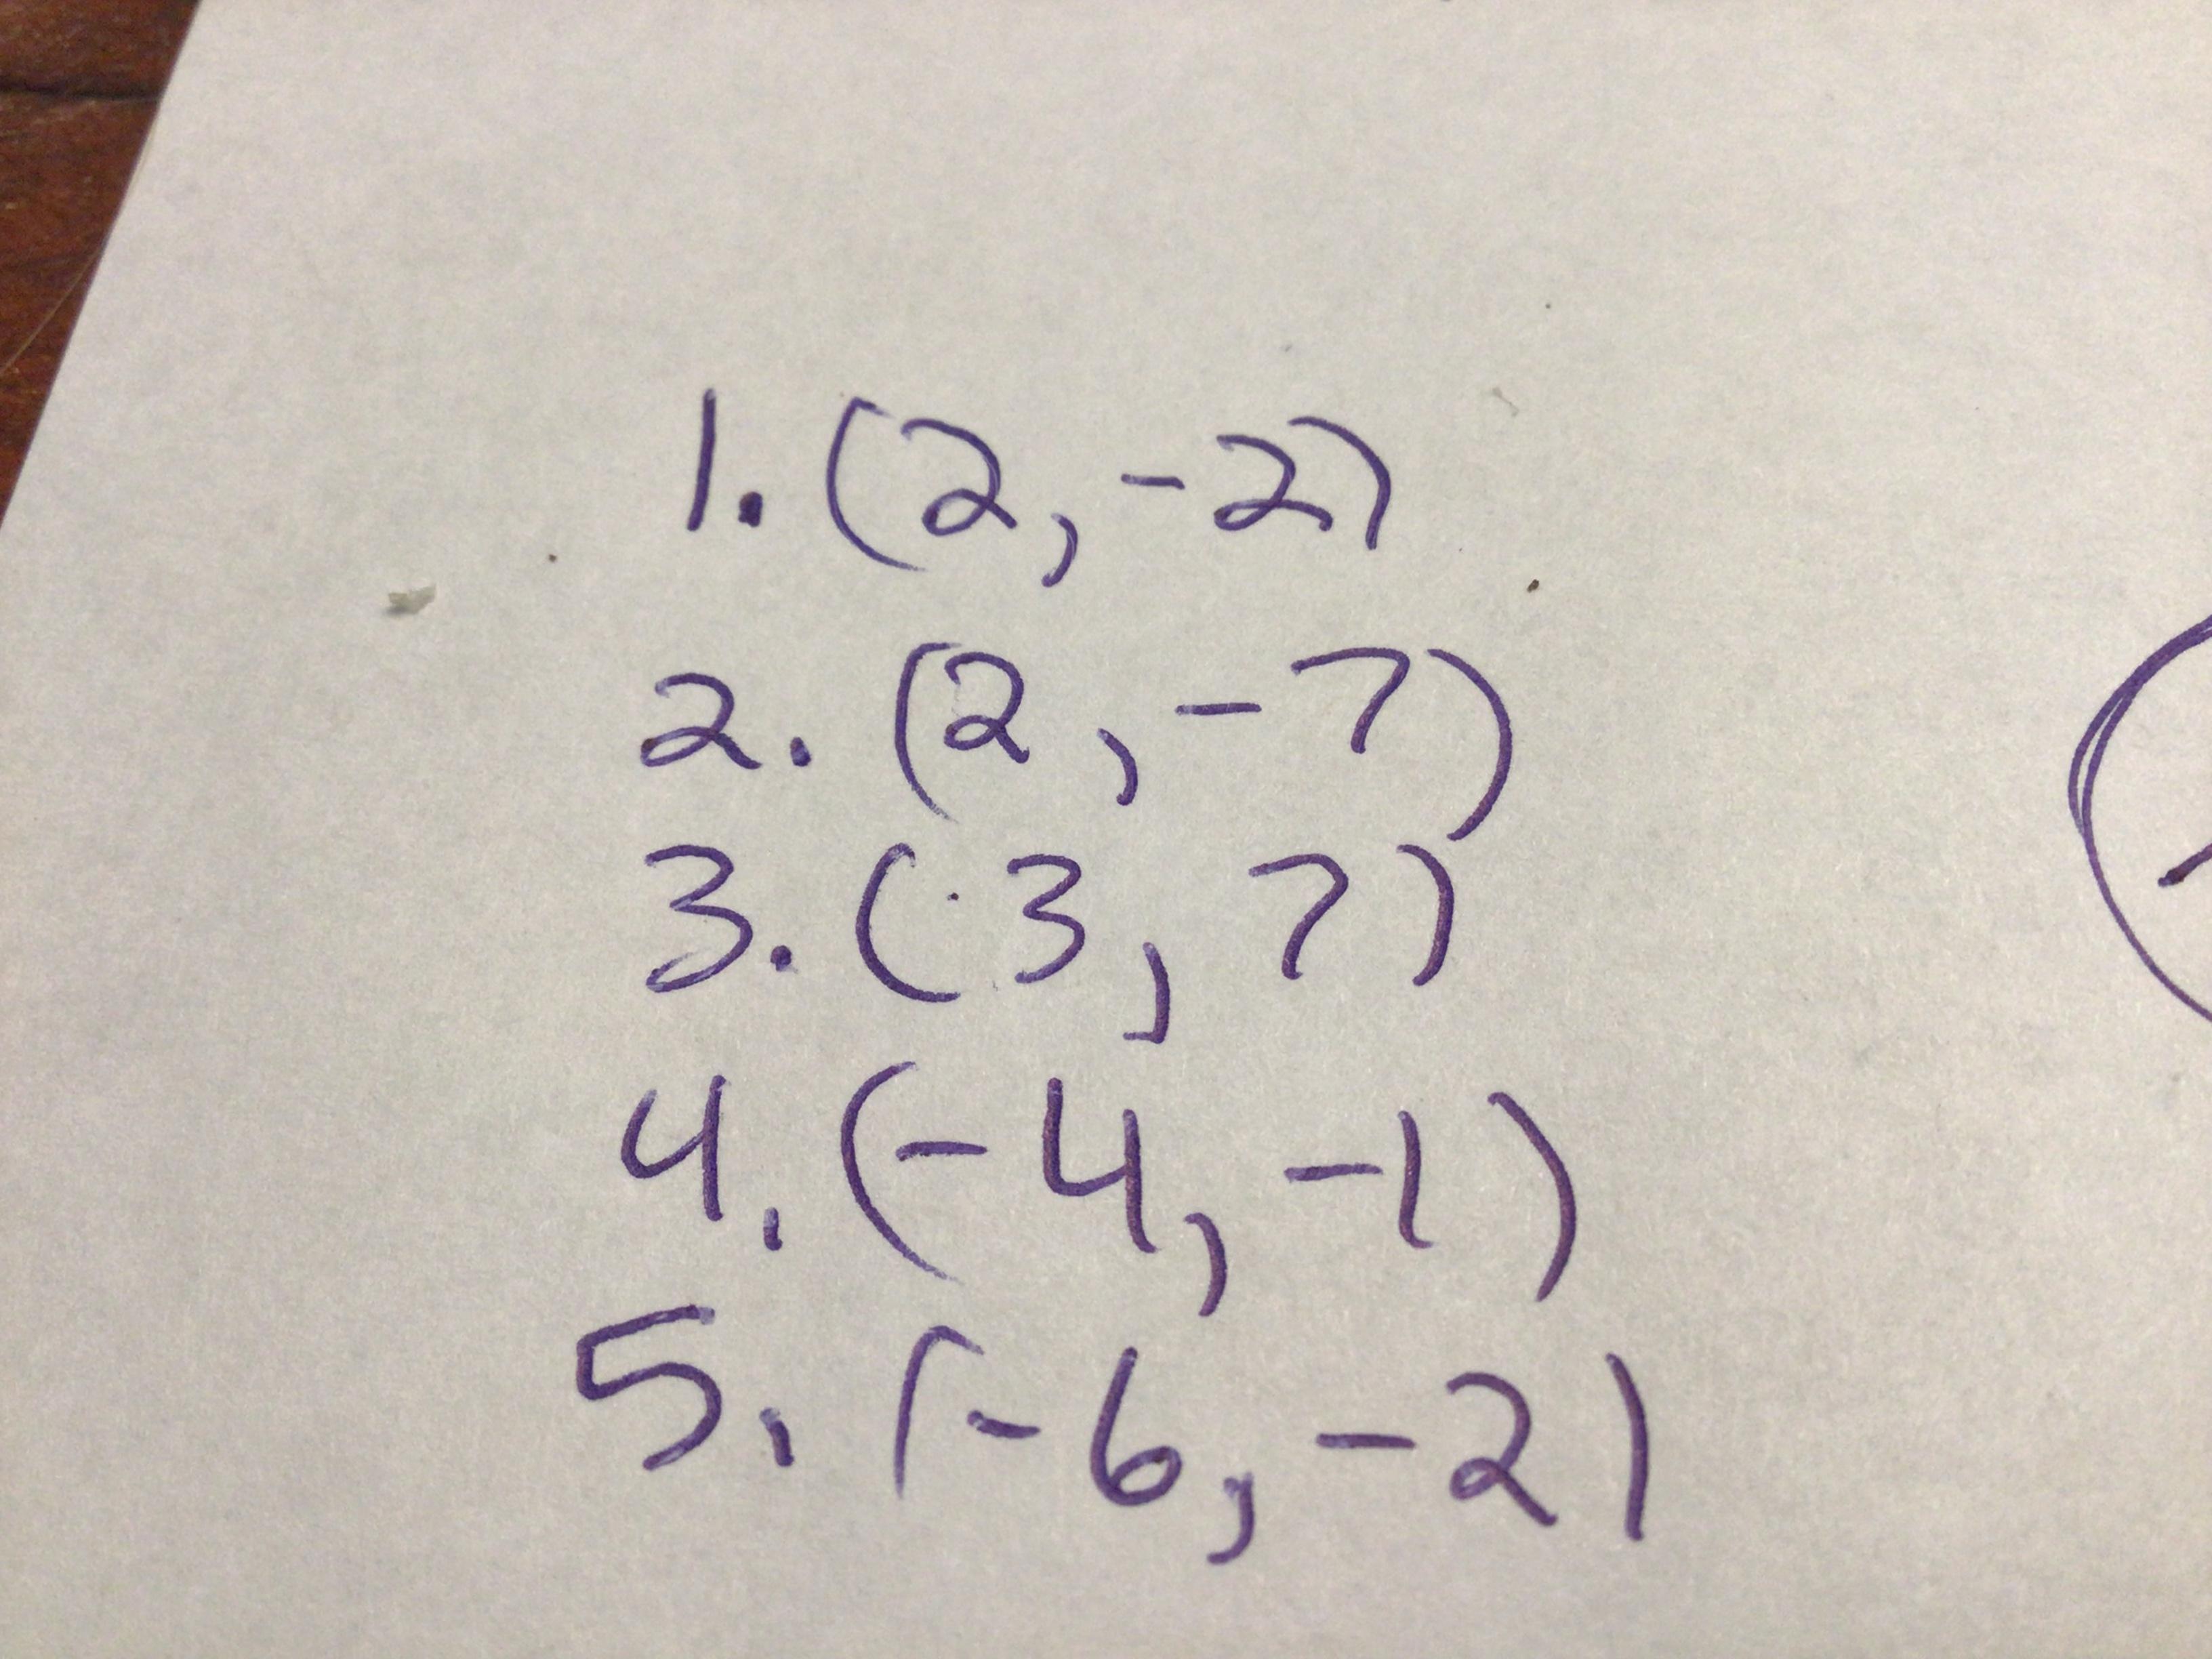 1. (2, -2)
2. (2, -7)
3. (3, 7)
4. (-4, -1)
5. (-6, -2)